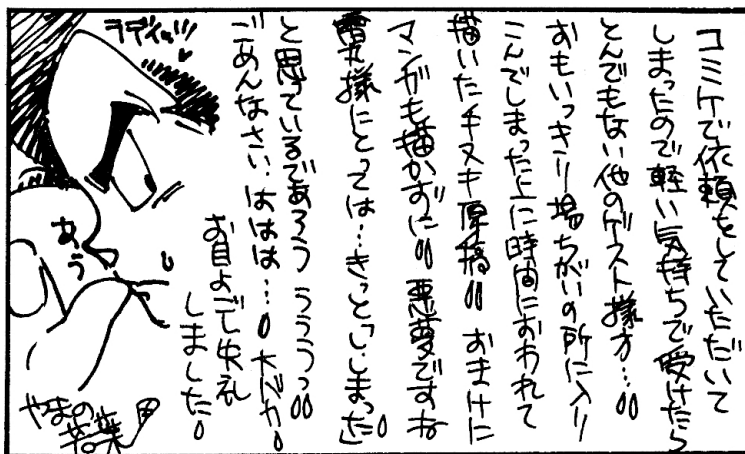 コミケで依頼をしていただいて
しまったので軽い気持ちで受けたら
とんでもない他のゲスト様方…!!
おもいっきり場ちがいの所に入り
こんでしまった上に時間におわれて
描いたチヌキ原稿!! おまけに
マンガも描かずに!! 悪夢ですね
雷丸様にとっては…きっと「しまった」
と思っているであろう うううっ!!
ごめんなさい ははは…! 大バカ!
お目よごし失礼
しました!
ラディッツ
あう
やまの
若葉